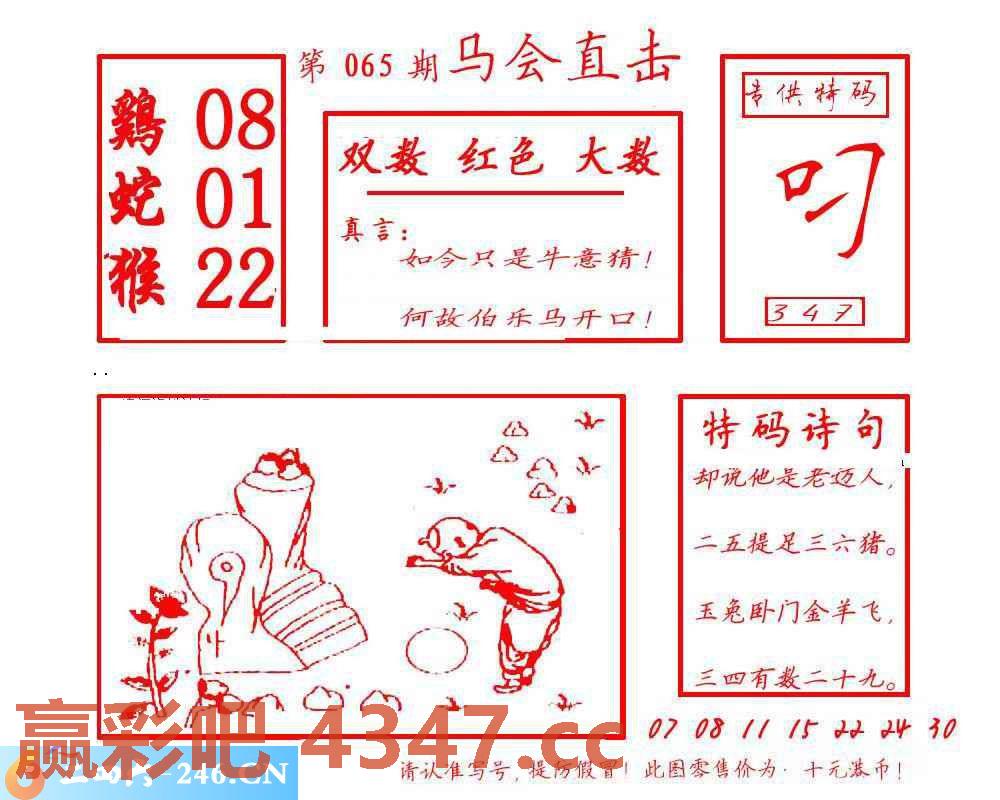 第 065 期 马会直击
鷄 08
蛇 01
猴 22
双数 红色 大数
真言：
如今只是牛意猜！
何故伯乐马开口！
专供特码
叼
3 4 7
特码诗句
却说他是老迈人，
二五提足三六猪。
玉兔卧门金羊飞，
三四有数二十九。
07 08 11 15 22 24 30
赢彩吧 4347.cc
-246.CN
请认准写号，提防假冒！此图零售价为·十元港币！